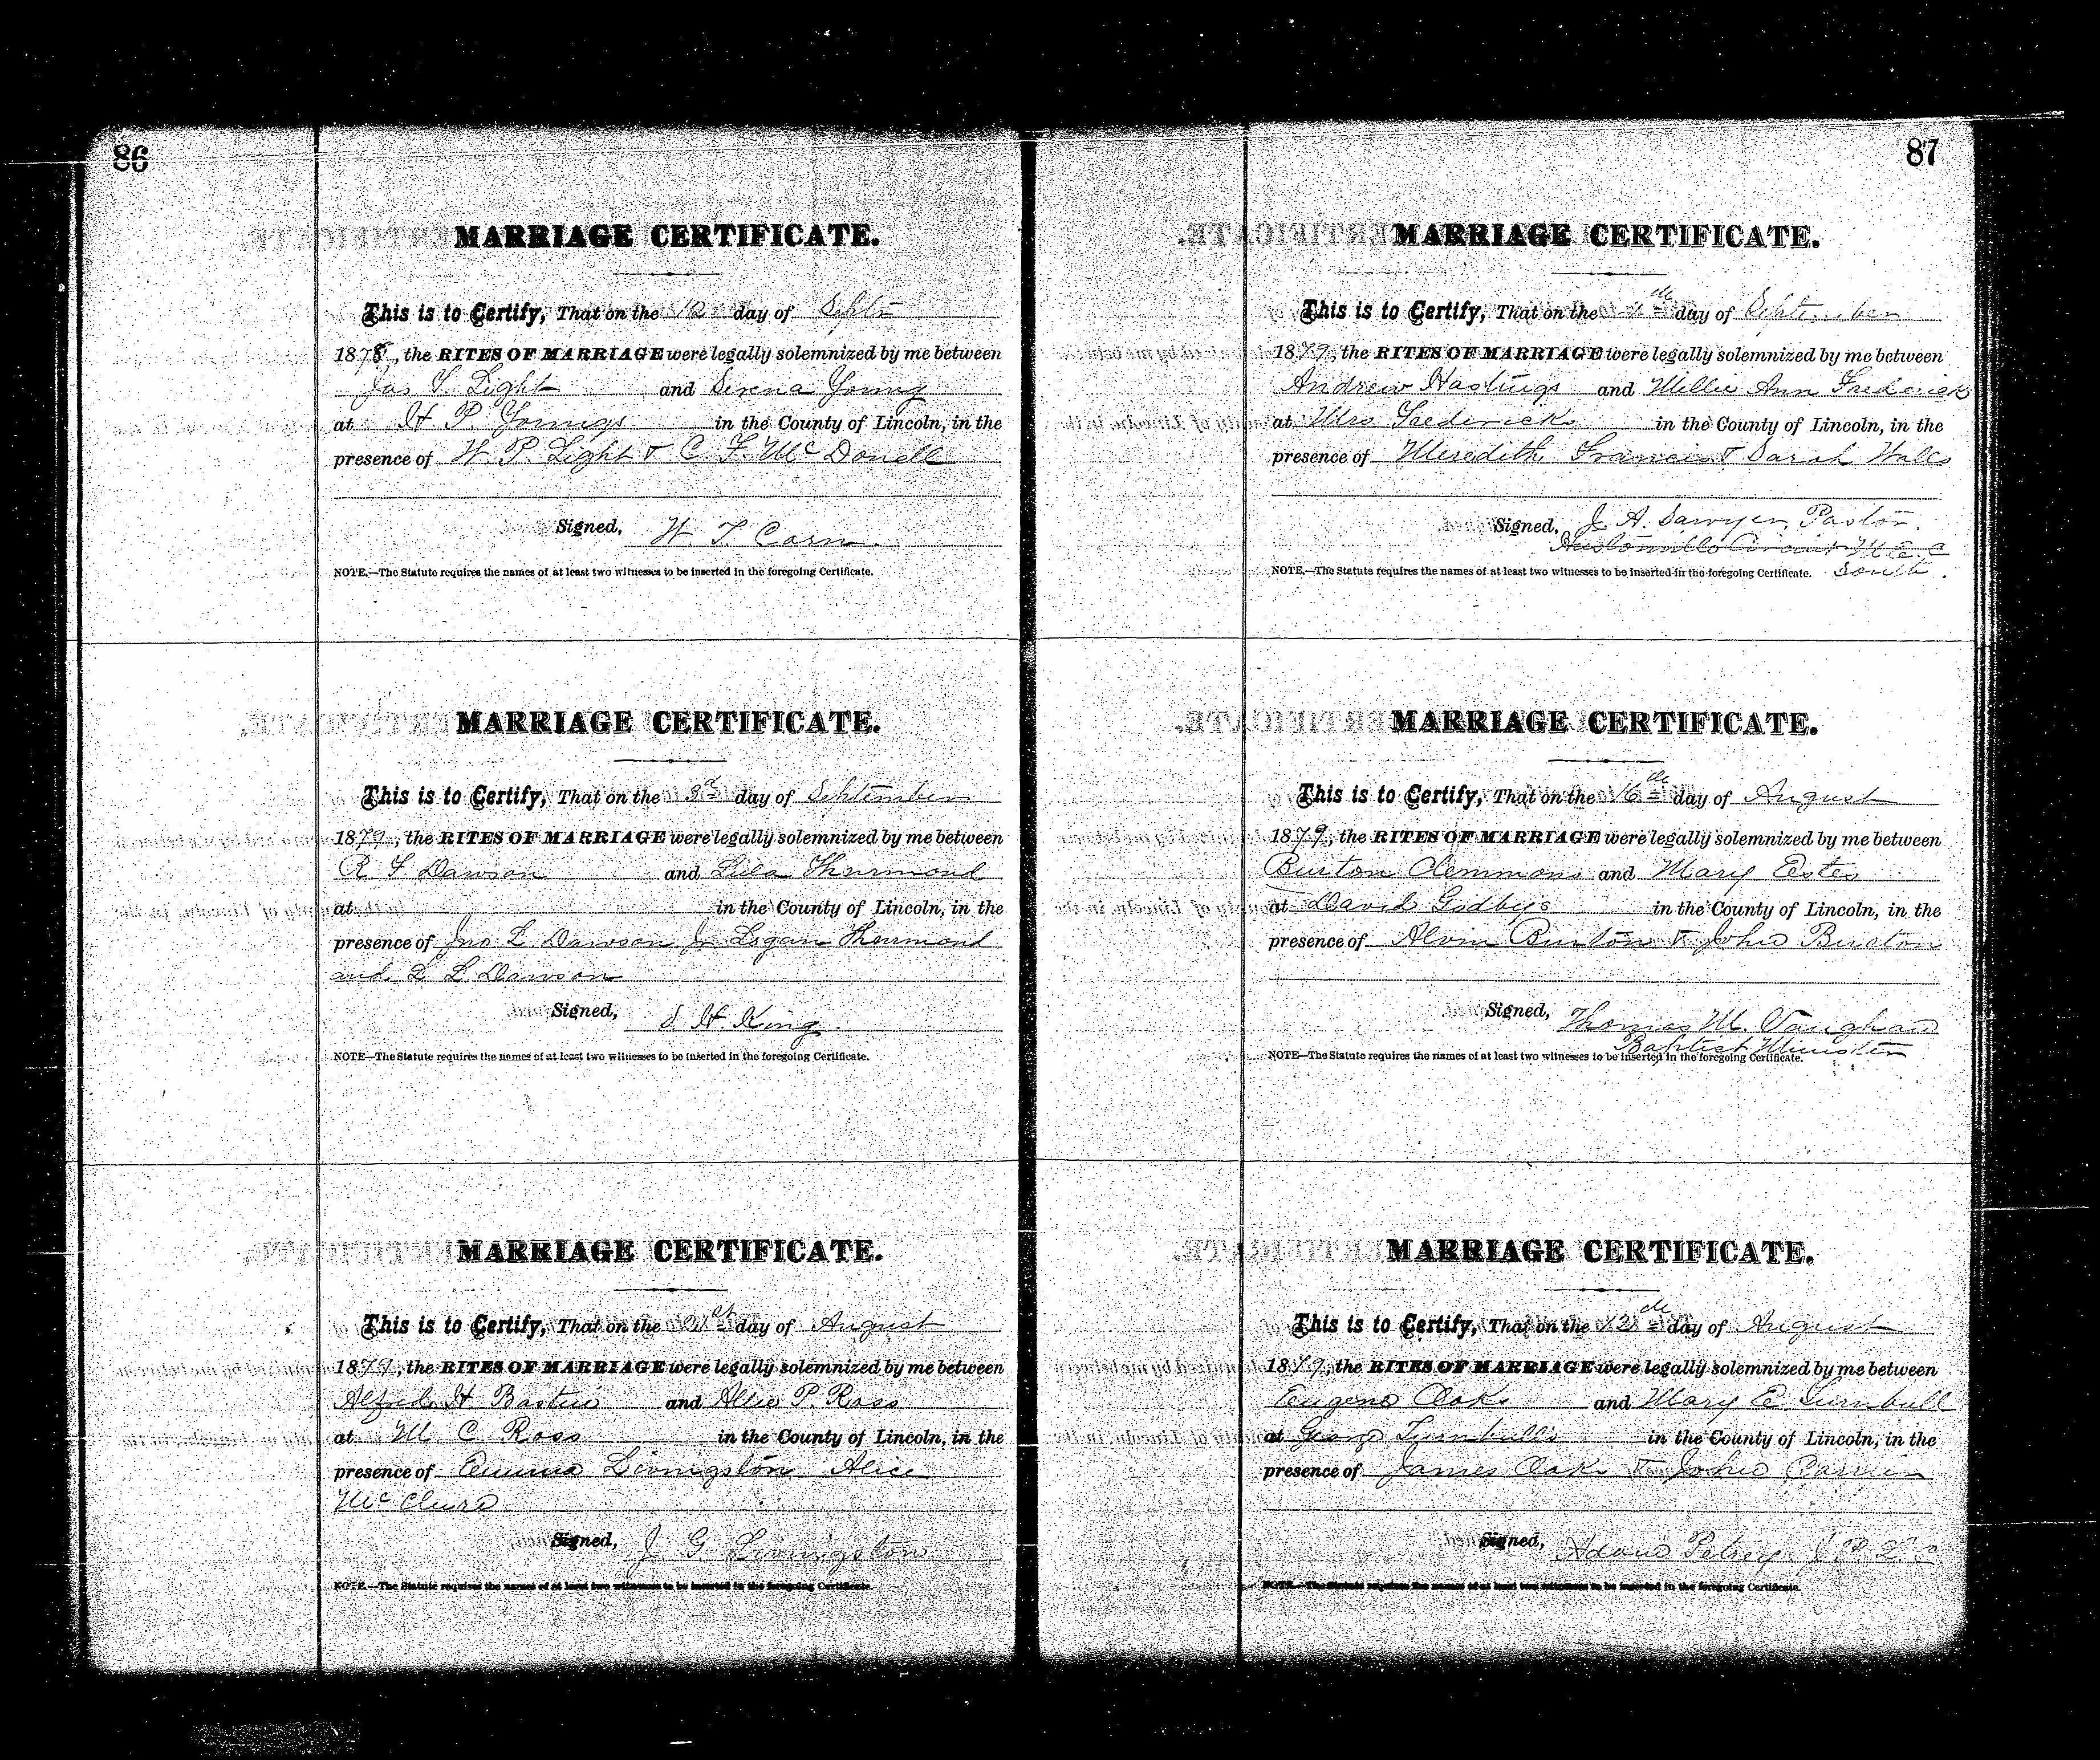 86
MARRIAGE CERTIFICATE.
This is to Certify, That on the 12 day of Septr
1878, the RITES OF MARRIAGE were legally solemnized by me between
Jas S. Light and Serena Young
at H. P. Youngs in the County of Lincoln, in the
presence of W. P. Light & C. F. McDonell
Signed, W. T. Corn.
NOTE.—The Statute requires the names of at least two witnesses to be inserted in the foregoing Certificate.
MARRIAGE CERTIFICATE.
This is to Certify, That on the 3d day of September
1879, the RITES OF MARRIAGE were legally solemnized by me between
R F Dawson and Lula Thurmond
at in the County of Lincoln, in the
presence of Jno L Dawson Jr Logan Thurmond
and L. Dawson
Signed, S. H. King
NOTE—The Statute requires the names of at least two witnesses to be inserted in the foregoing Certificate.
MARRIAGE CERTIFICATE.
This is to Certify, That on the 21st day of August
1879, the RITES OF MARRIAGE were legally solemnized by me between
Alfred H and Allie P. Ross
at M C Ross in the County of Lincoln, in the
presence of Emma Livingston Alice
McClure
Signed, J. G. Livingston
NOTE.—The Statute requires the names of at least two witnesses to be inserted in the foregoing Certificate.
87
MARRIAGE CERTIFICATE.
This is to Certify, That on the 4th day of September
1879, the RITES OF MARRIAGE were legally solemnized by me between
Andrew Hastings and Willie Ann Frederick
at Mrs Fredericks in the County of Lincoln, in the
presence of Meredith Francis & Sarah Walls
Signed, J. A. Sawyer, Pastor.
Circuit M. E. C
South.
NOTE.—The Statute requires the names of at least two witnesses to be inserted in the foregoing Certificate.
MARRIAGE CERTIFICATE.
This is to Certify, That on the 16th day of August
1879, the RITES OF MARRIAGE were legally solemnized by me between
Burton Clemmons and Mary Estes
at David Godbys in the County of Lincoln, in the
presence of Alvin Burton & John Burton
Signed, Thomas M. Vaughan
Baptist Minister
NOTE—The Statute requires the names of at least two witnesses to be inserted in the foregoing Certificate.
MARRIAGE CERTIFICATE.
This is to Certify, That on the 12th day of August
1879, the RITES OF MARRIAGE were legally solemnized by me between
Eugene Oaks and Mary E. Turnbull
at George Turnbulls in the County of Lincoln, in the
presence of James Oaks & John
Signed, Adam Petrey J. P. L. C
NOTE.—The Statute requires the names of at least two witnesses to be inserted in the foregoing Certificate.